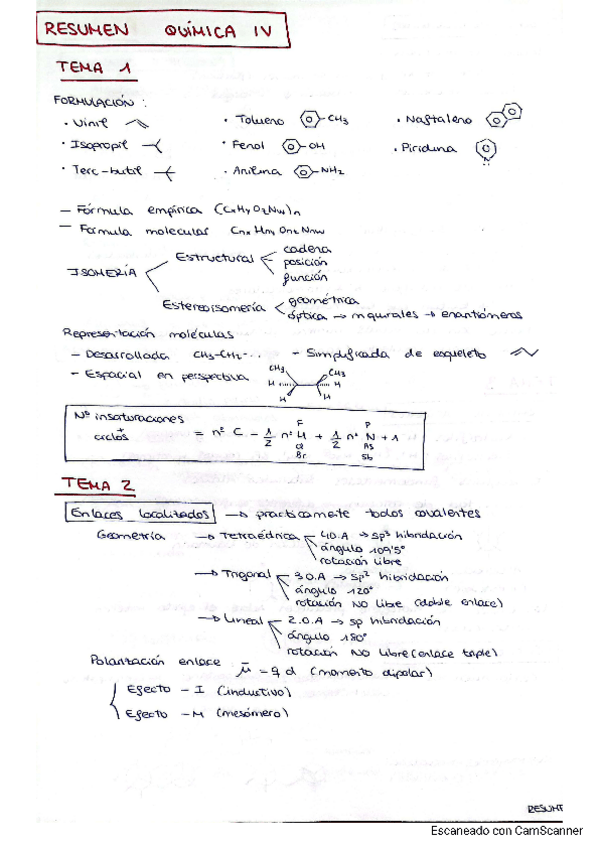 RESUMEN QUÍMICA IV
TEMA 1
FORMULACIÓN :
• Vinil • Tolueno CH3 • Naftaleno
• Isopropil • Fenol OH • Piridina
• Terc-butil • Anilina NH2
— Fórmula empírica (CxHyOzNw)n
— Fórmula molecular Cnx Hny Onz Nnw
ISOMERÍA
Estructural
cadena
posición
función
Estereoisomería
geométrica
óptica → → enantiómeros
Representación moléculas
— Desarrollada CH3-CH2-··· — Simplificada de esqueleto
— Espacial en perspectiva
CH3 CH3
H H
H H
Nº insaturaciones
+
ciclos = nº C - 1/2 nº H + 1/2 nº N + 1
F P
Cl As
Br Sb
TEMA 2
Enlaces localizados → prácticamente todos covalentes
Geometría → Tetraédrica
4 O.A → sp3 hibridación
ángulo 109'5º
rotación libre
→ Trigonal
3 O.A → sp2 hibridación
ángulo 120º
rotación NO libre (doble enlace)
→ Lineal
2.O.A → sp hibridación
ángulo 180º
rotación NO libre (enlace triple)
Polarización enlace : μ = q d (momento dipolar)
Efecto - I (inductivo)
Efecto - M (mesómero)
RESUMT
Escaneado con CamScanner